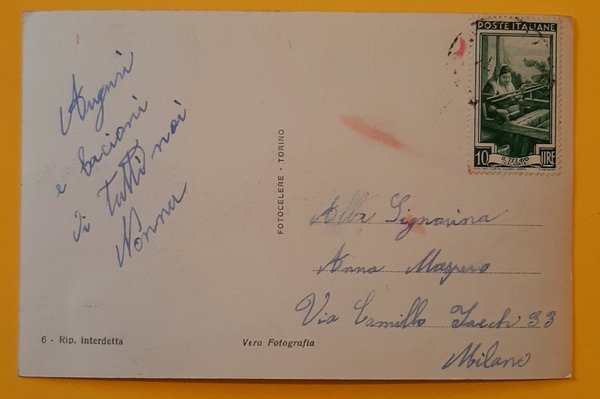 Auguri
e bacioni
di tutti noi
Nonna
FOTOCELERE - TORINO
6 - Rip. interdetta
Vera Fotografia
POSTE ITALIANE
10 IL TELAIO LIRE
Alla Signorina
Anna
Via Camillo 33
Milano